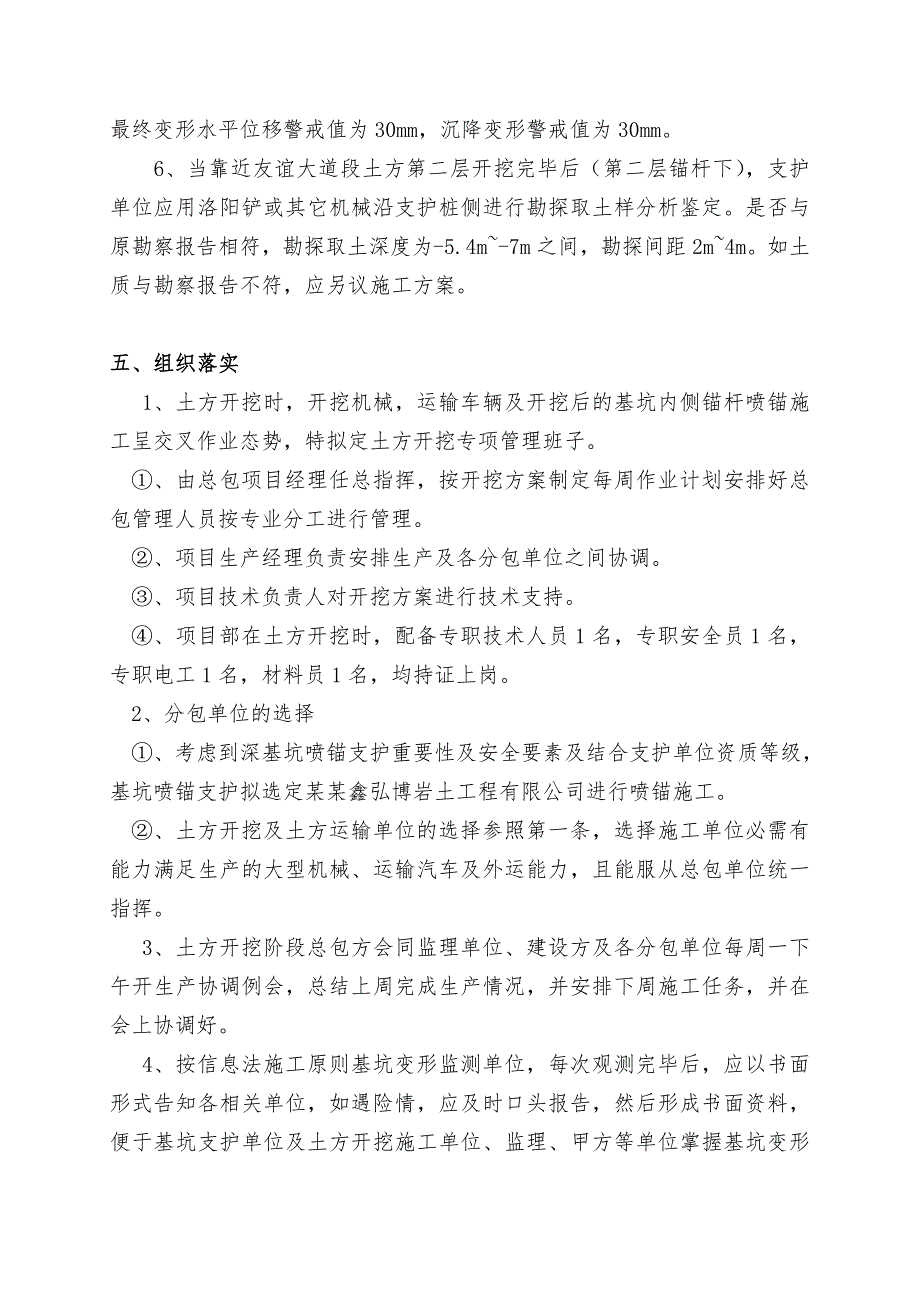 最终变形水平位移警戒值为30mm，沉降变形警戒值为30mm。
6、当靠近友谊大道段土方第二层开挖完毕后（第二层锚杆下），支护
单位应用洛阳铲或其它机械沿支护桩侧进行勘探取土样分析鉴定。是否与
原勘察报告相符，勘探取土深度为-5.4m~-7m之间，勘探间距2m~4m。如土
质与勘察报告不符，应另议施工方案。
五、组织落实
1、土方开挖时，开挖机械，运输车辆及开挖后的基坑内侧锚杆喷锚施
工呈交叉作业态势，特拟定土方开挖专项管理班子。
①、由总包项目经理任总指挥，按开挖方案制定每周作业计划安排好总
包管理人员按专业分工进行管理。
②、项目生产经理负责安排生产及各分包单位之间协调。
③、项目技术负责人对开挖方案进行技术支持。
④、项目部在土方开挖时，配备专职技术人员1名，专职安全员1名，
专职电工1名，材料员1名，均持证上岗。
2、分包单位的选择
①、考虑到深基坑喷锚支护重要性及安全要素及结合支护单位资质等级，
基坑喷锚支护拟选定某某鑫弘博岩土工程有限公司进行喷锚施工。
②、土方开挖及土方运输单位的选择参照第一条，选择施工单位必需有
能力满足生产的大型机械、运输汽车及外运能力，且能服从总包单位统一
指挥。
3、土方开挖阶段总包方会同监理单位、建设方及各分包单位每周一下
午开生产协调例会，总结上周完成生产情况，并安排下周施工任务，并在
会上协调好。
4、按信息法施工原则基坑变形监测单位，每次观测完毕后，应以书面
形式告知各相关单位，如遇险情，应及时口头报告，然后形成书面资料，
便于基坑支护单位及土方开挖施工单位、监理、甲方等单位掌握基坑变形